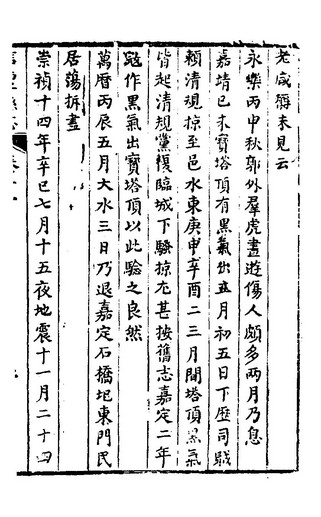 老咸謂未見云
永樂丙申秋郭外羣虎晝遊傷人頗多兩月乃息
嘉靖己未寶塔頂有黑氣出五月初五日下歷司賊
賴清規掠至邑水東庚申辛酉二三月間塔頂黑氣
皆起清規黨復臨城下驗掠尤甚按舊志嘉定二年
作黑氣出寶塔頂以此驗之良然
萬曆丙辰五月大水三日乃退嘉定石橋圯東門民
居蕩拆盡
崇禎十四年辛巳七月十五夜地震十一月二十四